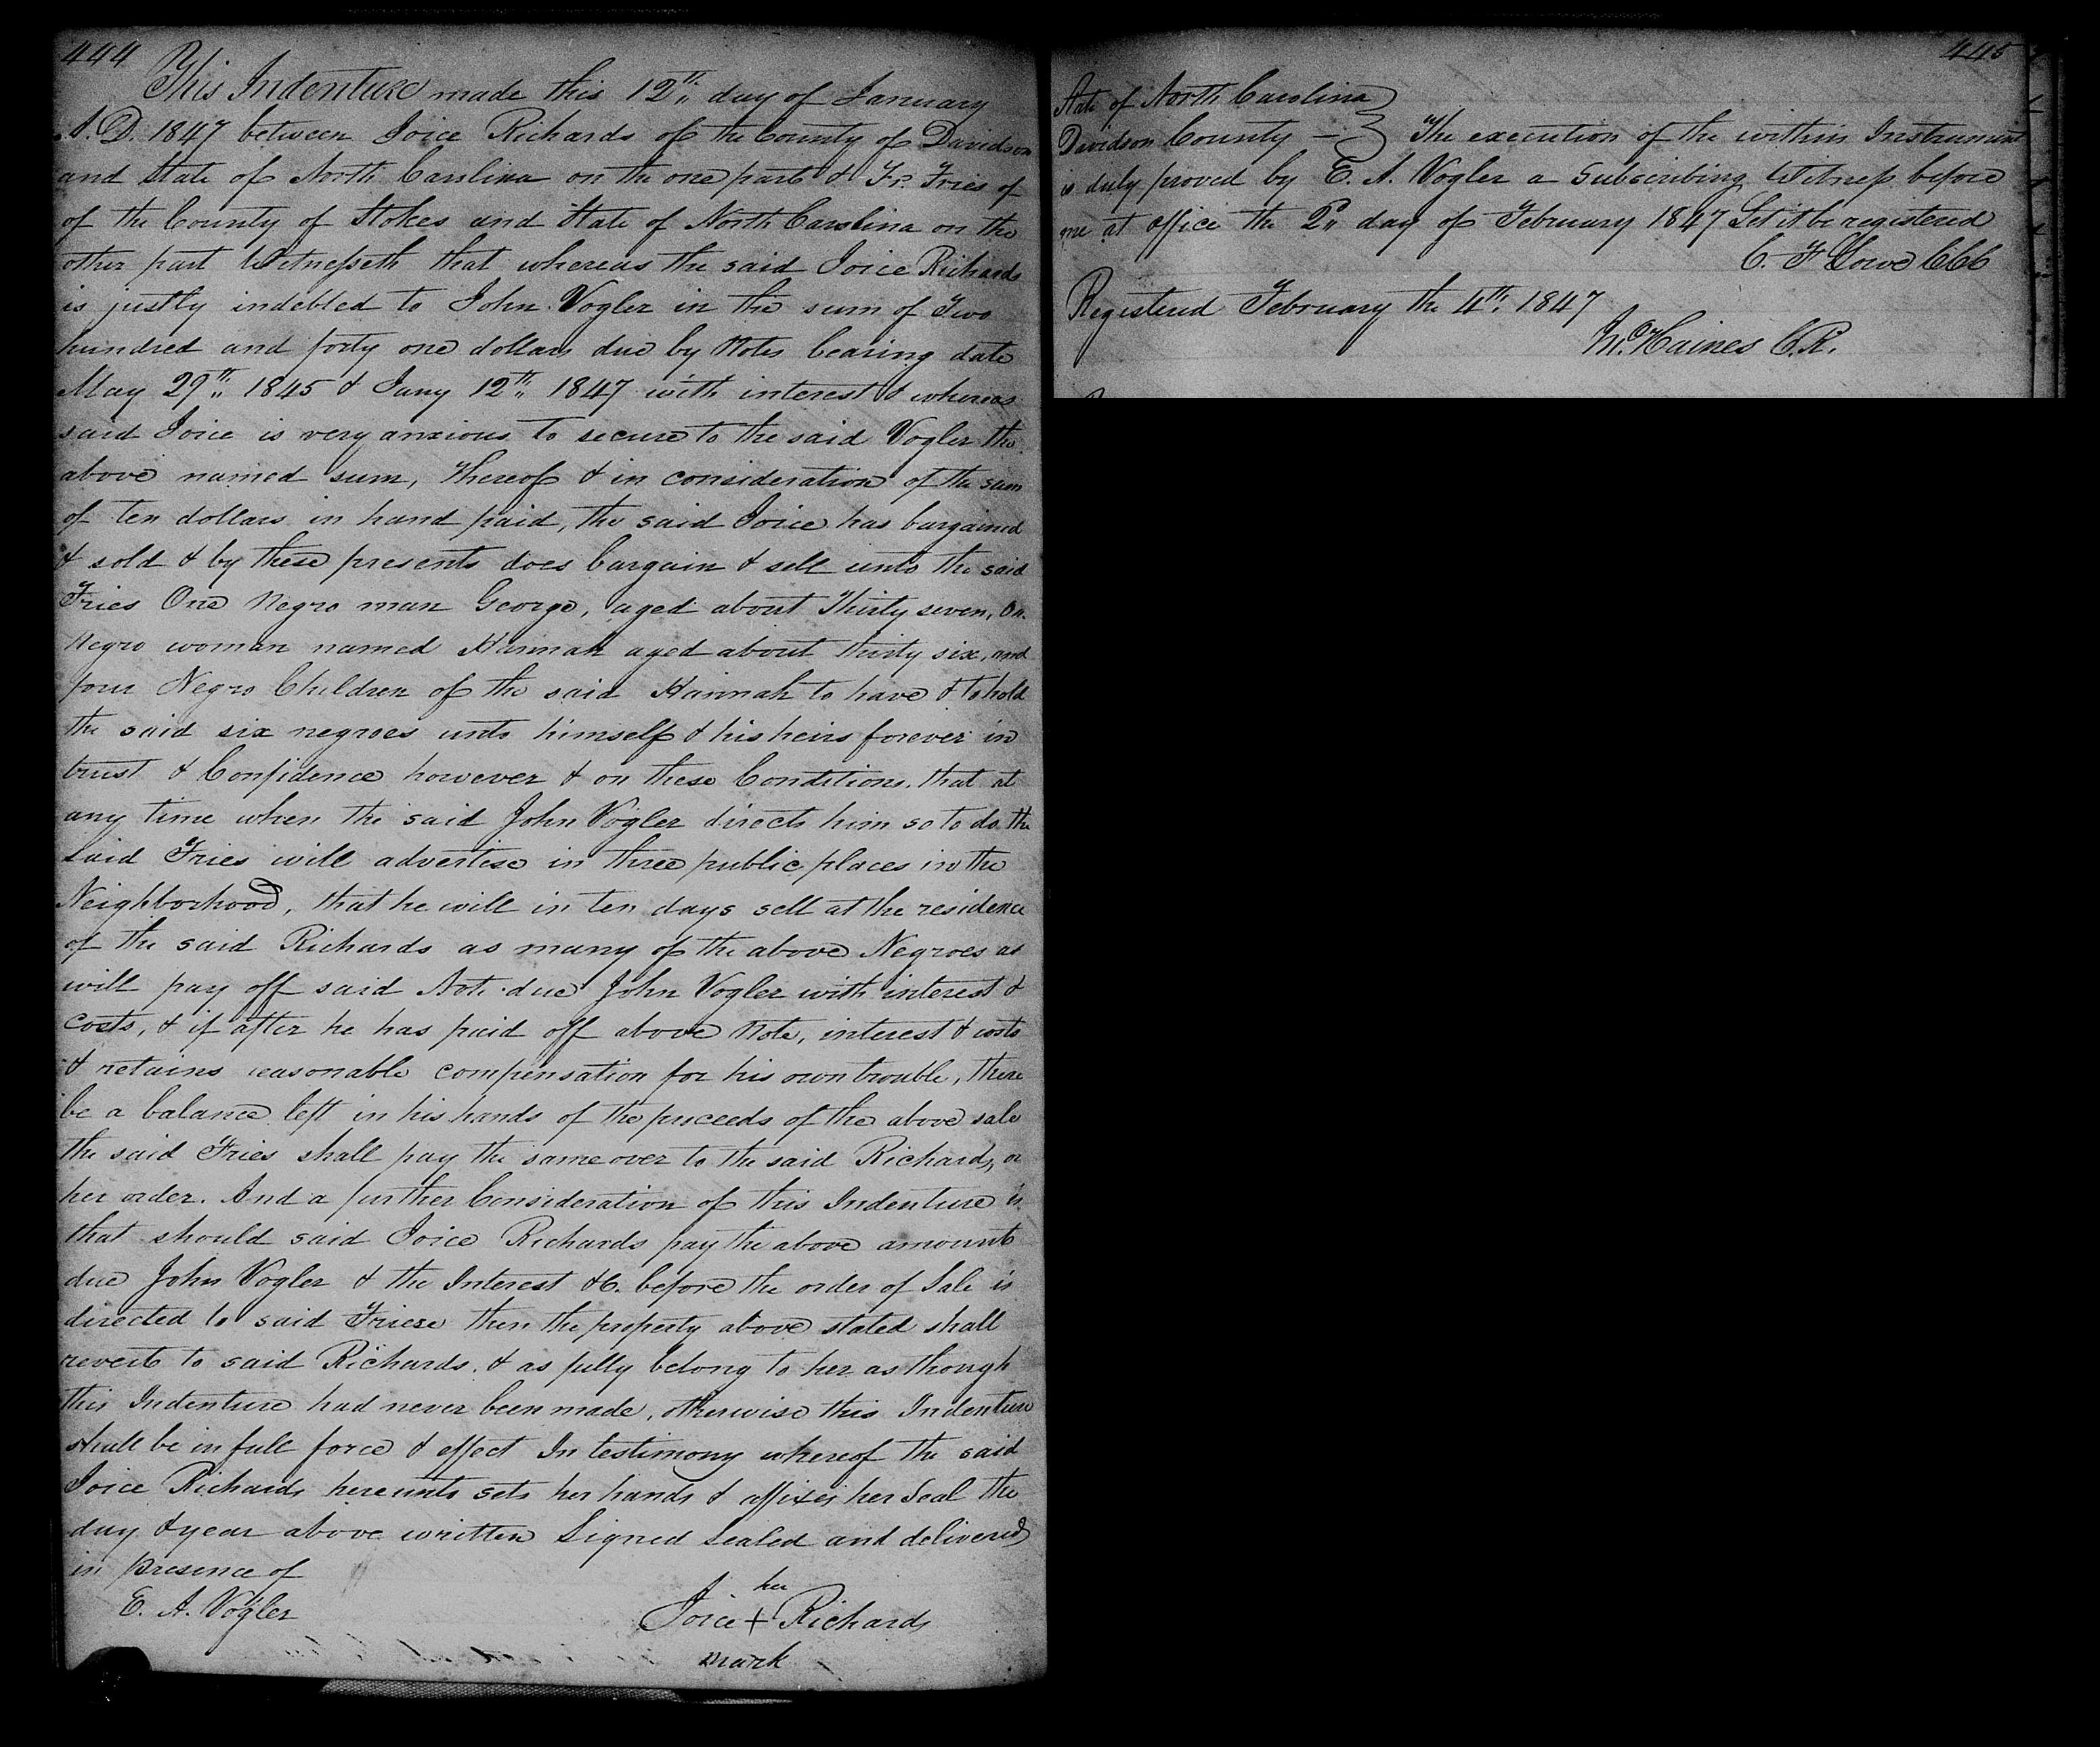 444
This Indenture made this 12th day of January
A. D. 1847 between Joice Richards of the County of Davidson
and State of North Carolina on the one part & Fr. Fries of
of the County of Stokes and State of North Carolina on the
other part Witnesseth that whereas the said Joice Richards
is justly indebted to John Vogler in the sum of Two
hundred and forty one dollars due by Notes bearing date
May 29th 1845 & Jany 12th 1847 with interest & whereas
said Joice is very anxious to secure to the said Vogler the
above named sum, Thereof & in consideration of the sum
of ten dollars in hand paid, the said Joice has bargained
& sold & by these presents does bargain & sell unto the said
Fries One Negro man George, aged about Thirty seven, On
Negro woman named Hannah aged about thirty six, and
four Negro Children of the said Hannah to have & to hold
the said six negroes unto himself & his heirs forever in
trust & Confidence however & on these Conditions, that at
any time when the said John Vogler directs him so to do the
said Fries will advertise in three public places in the
Neighborhood, that he will in ten days sell at the residence
of the said Richards as many of the above Negroes as
will pay off said Note due John Vogler with interest &
costs, & if after he has paid off above Note, interest & costs
& retains reasonable compensation for his own trouble, there
be a balance left in his hands of the proceeds of the above sale
the said Fries shall pay the same over to the said Richards, or
her order. And a further Consideration of this Indenture is
that should said Joice Richards pay the above amount
due John Vogler & the Interest &C. before the order of Sale is
directed to said Friese then the property above stated shall
revert to said Richards, & as fully belong to her as though
this Indenture had never been made, otherwise this Indenture
shall be in full force & effect In testimony whereof the said
Joice Richards hereunto sets her hands & affixes her Seal the
day & year above written Signed Sealed and delivered
in presence of
E. A. Vogler
her
Joice + Richards
mark
445
State of North Carolina
Davidson County — The execution of the within Instrument
is duly proved by E. A. Vogler a Subscribing Witness before
me at office the 2n day of February 1847 Let it be registered
C. F Lowe CCC
Registered February the 4th 1847
M. Haines C.R.